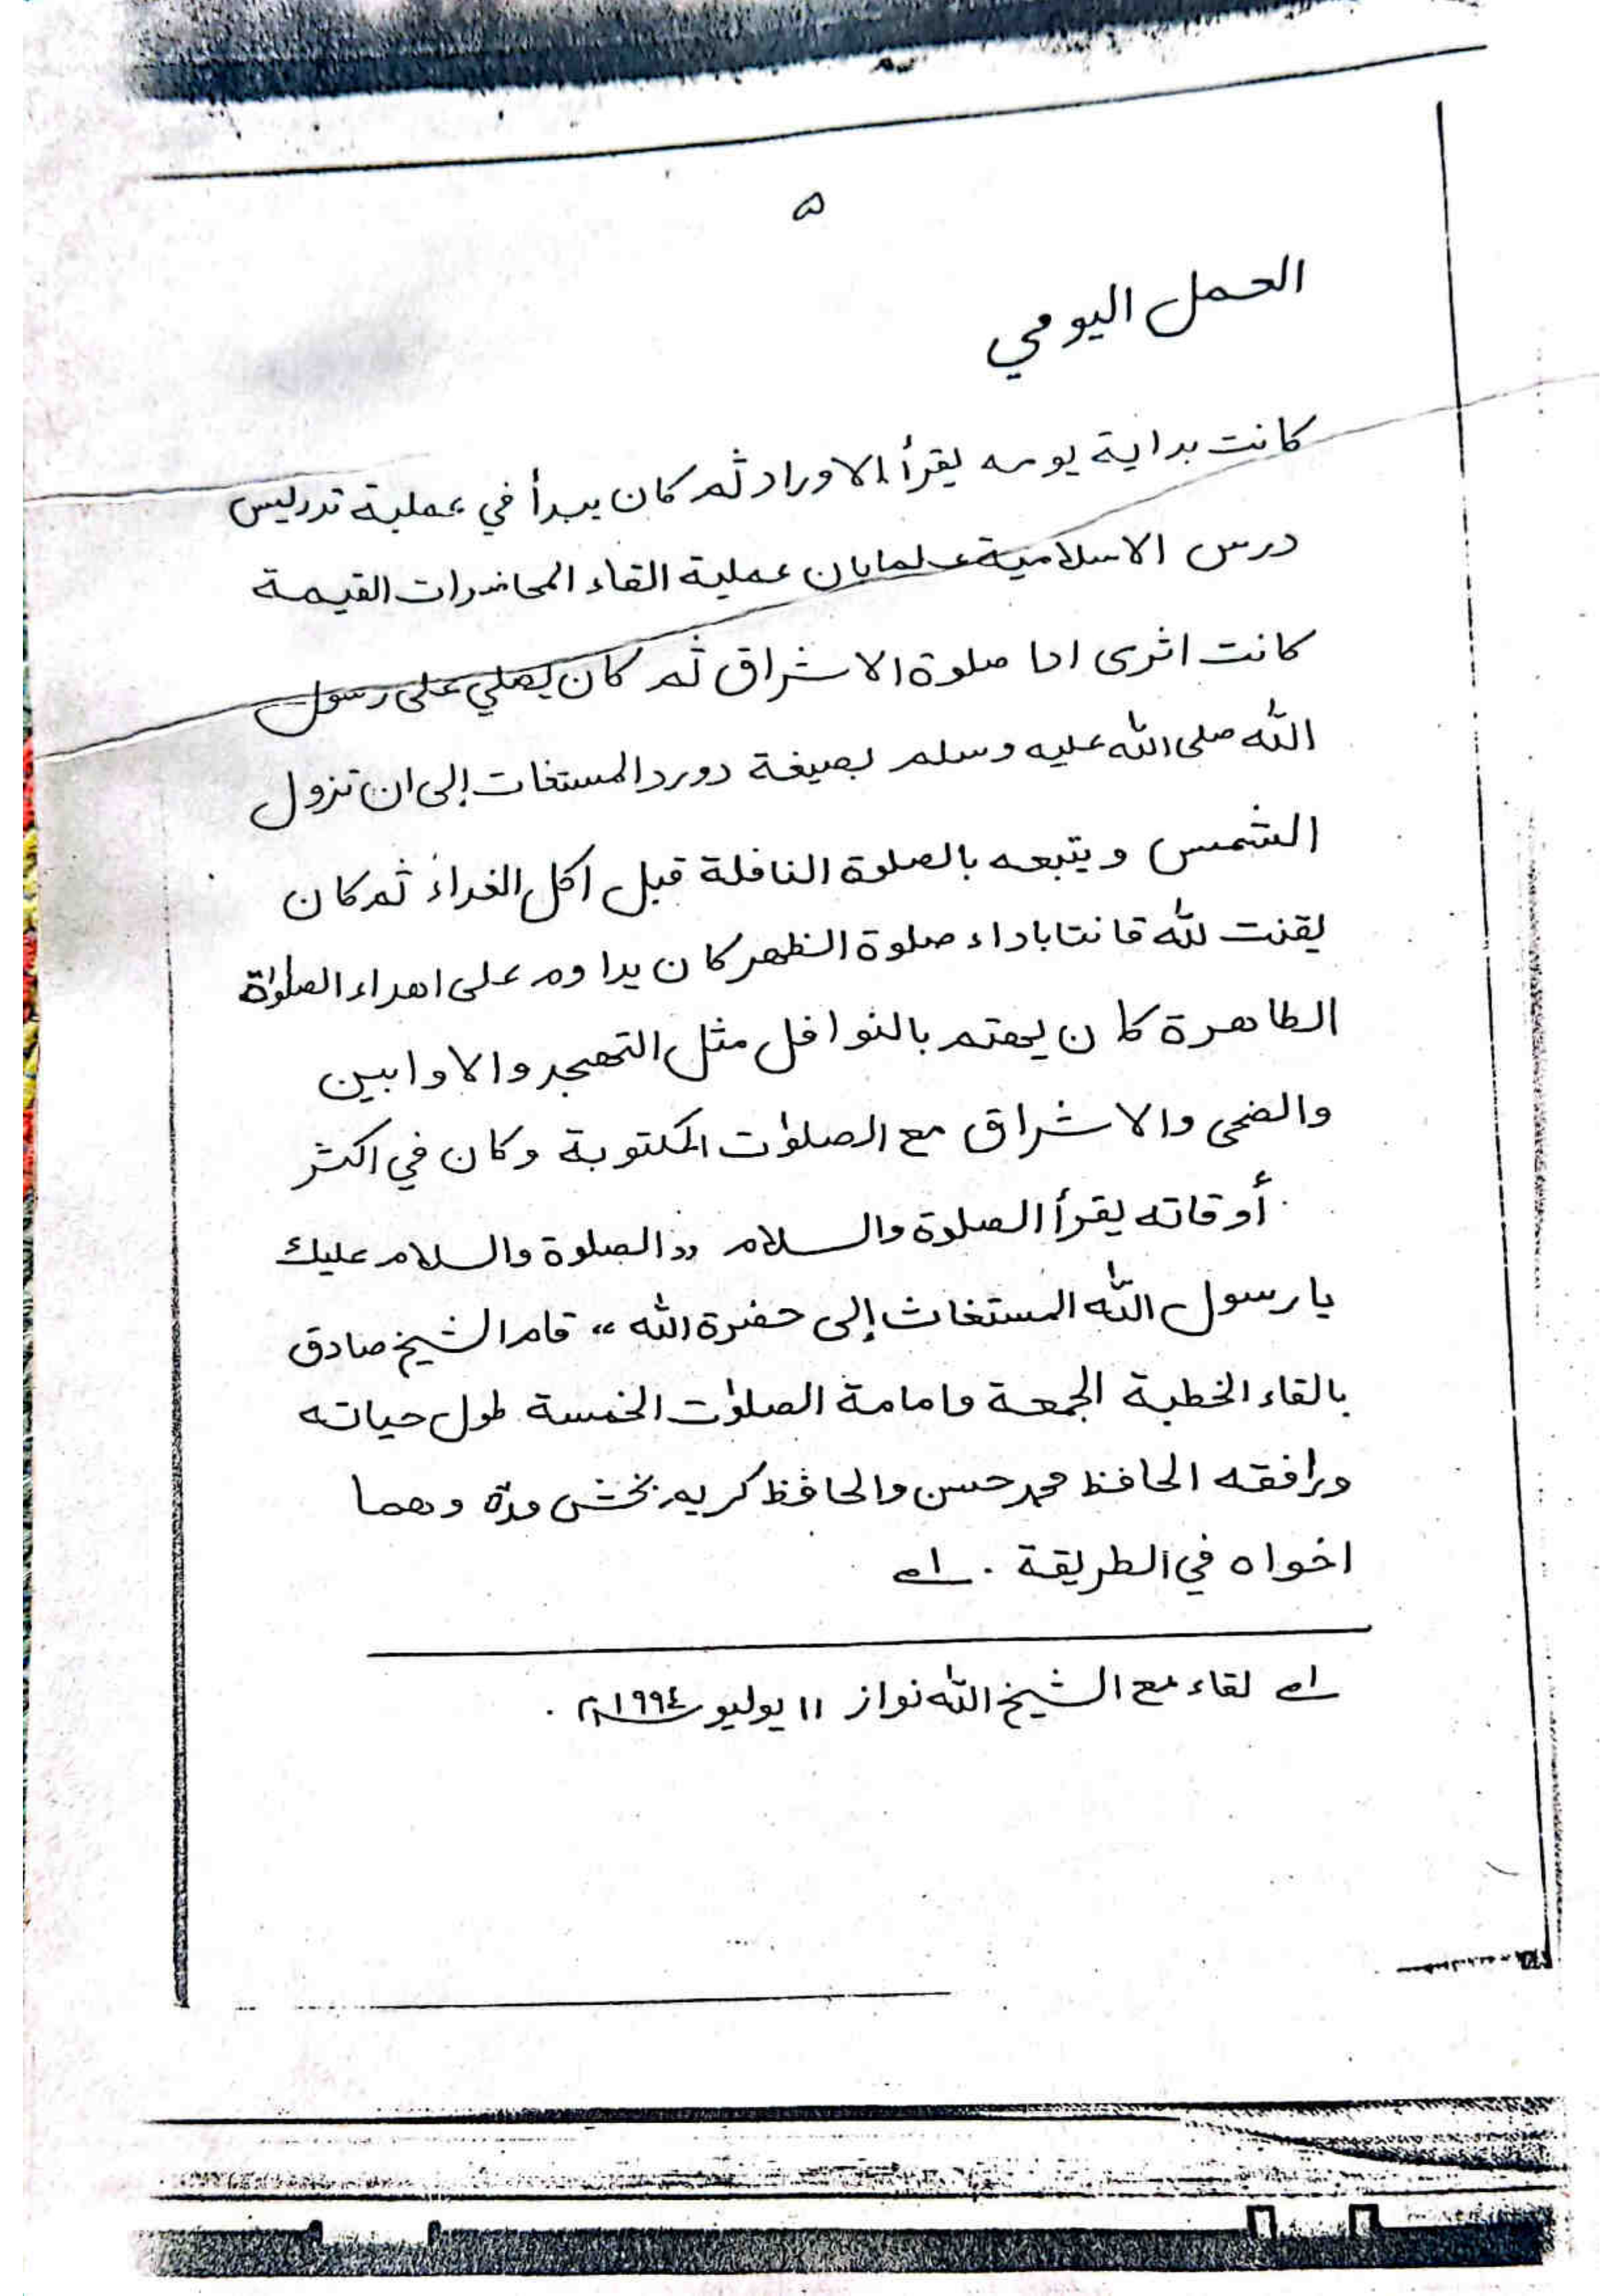 ۵
العمل اليومي
كانت بداية يومه يقرأ الاوراد ثم كان يبدأ في عملية تدريس
درس الاسلامية علمابان عملية القاء المحاضرات القيمة
كانت اثرى ادا صلوة الاشراق ثم كان يصلي على رسول
الله صلى الله عليه وسلم بصيغة دورد المستغات إلى ان تزول
الشمس ويتبعه بالصلوة النافلة قبل اكل الغداء ثم كان
يقنت لله قانتا باداء صلوة الظهر كان يداوم على اهداء الصلوٰة
الطاهرة كان يهتم بالنوافل مثل التهجد والاوابين
والضحى والاشراق مع الصلوٰت المكتوبة وكان في اكثر
أوقاته يقرأ الصلوة والسلام ,,الصلوة والسلام عليك
يا رسول الله المستغاث إلى حضرة الله،، قام الشيخ صادق
بالقاء الخطبة الجمعة وامامة الصلوٰت الخمسة طول حياته
ورافقه الحافظ محمد حسن والحافظ كريم بخش مدة وهما
اخواه في الطريقة . ١ه
١ه لقاء مع الشيخ الله نواز ١١ يوليو ١٩٩٤م .